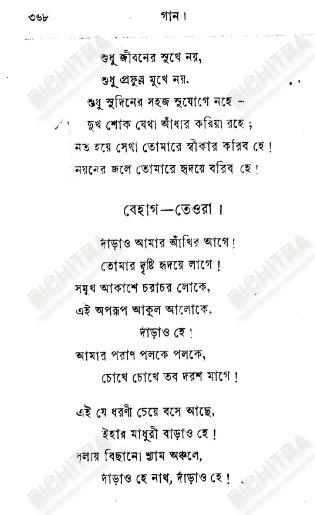 ৩৬৮
গান।
শুধু জীবনের সুখে নয়,
শুধু প্রফুল্ল মুখে নয়,
শুধু সুদিনের সহজ সুযোগে নহে –
দুখ শোক যেথা আঁধার করিয়া রহে ;
নত হয়ে সেথা তোমারে স্বীকার করিব হে !
নয়নের জলে তোমারে হৃদয়ে বরিব হে !
বেহাগ—তেওরা ।
দাঁড়াও আমার আঁখির আগে !
তোমার দৃষ্টি হৃদয়ে লাগে !
সমুখ আকাশে চরাচর লোকে,
এই অপরূপ আকুল আলোকে,
দাঁড়াও হে !
আমার পরাণ পলকে পলকে,
চোখে চোখে তব দরশ মাগে !
এই যে ধরণী চেয়ে বসে আছে,
ইহার মাধুরী বাড়াও হে !
ধূলায় বিছানো শ্যাম অঞ্চলে,
দাঁড়াও হে নাথ, দাঁড়াও হে !
BICHITRA